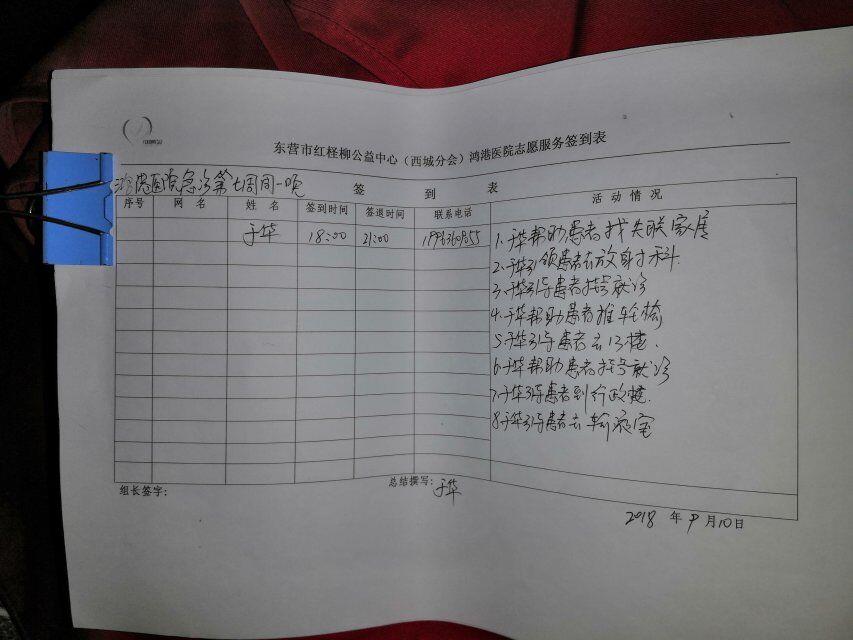 东营市红柽柳公益中心（西城分会）鸿港医院志愿服务签到表
鸿港医院急诊第七周周一晚
签 到 表
活 动 情 况
序号 网 名 姓 名 签到时间 签退时间 联系电话
于华 18:00 21:00
1.于华帮助患者找失联家属
2.于华引领患者去放射科
3.于华引导患者挂号就诊
4.于华帮助患者推轮椅
5.于华引导患者去门楼.
6.于华帮助患者挂号就诊
7.于华引导患者到行政楼.
8.于华引导患者去输液室
组长签字：
总结撰写：于华
2018 年 9 月10日